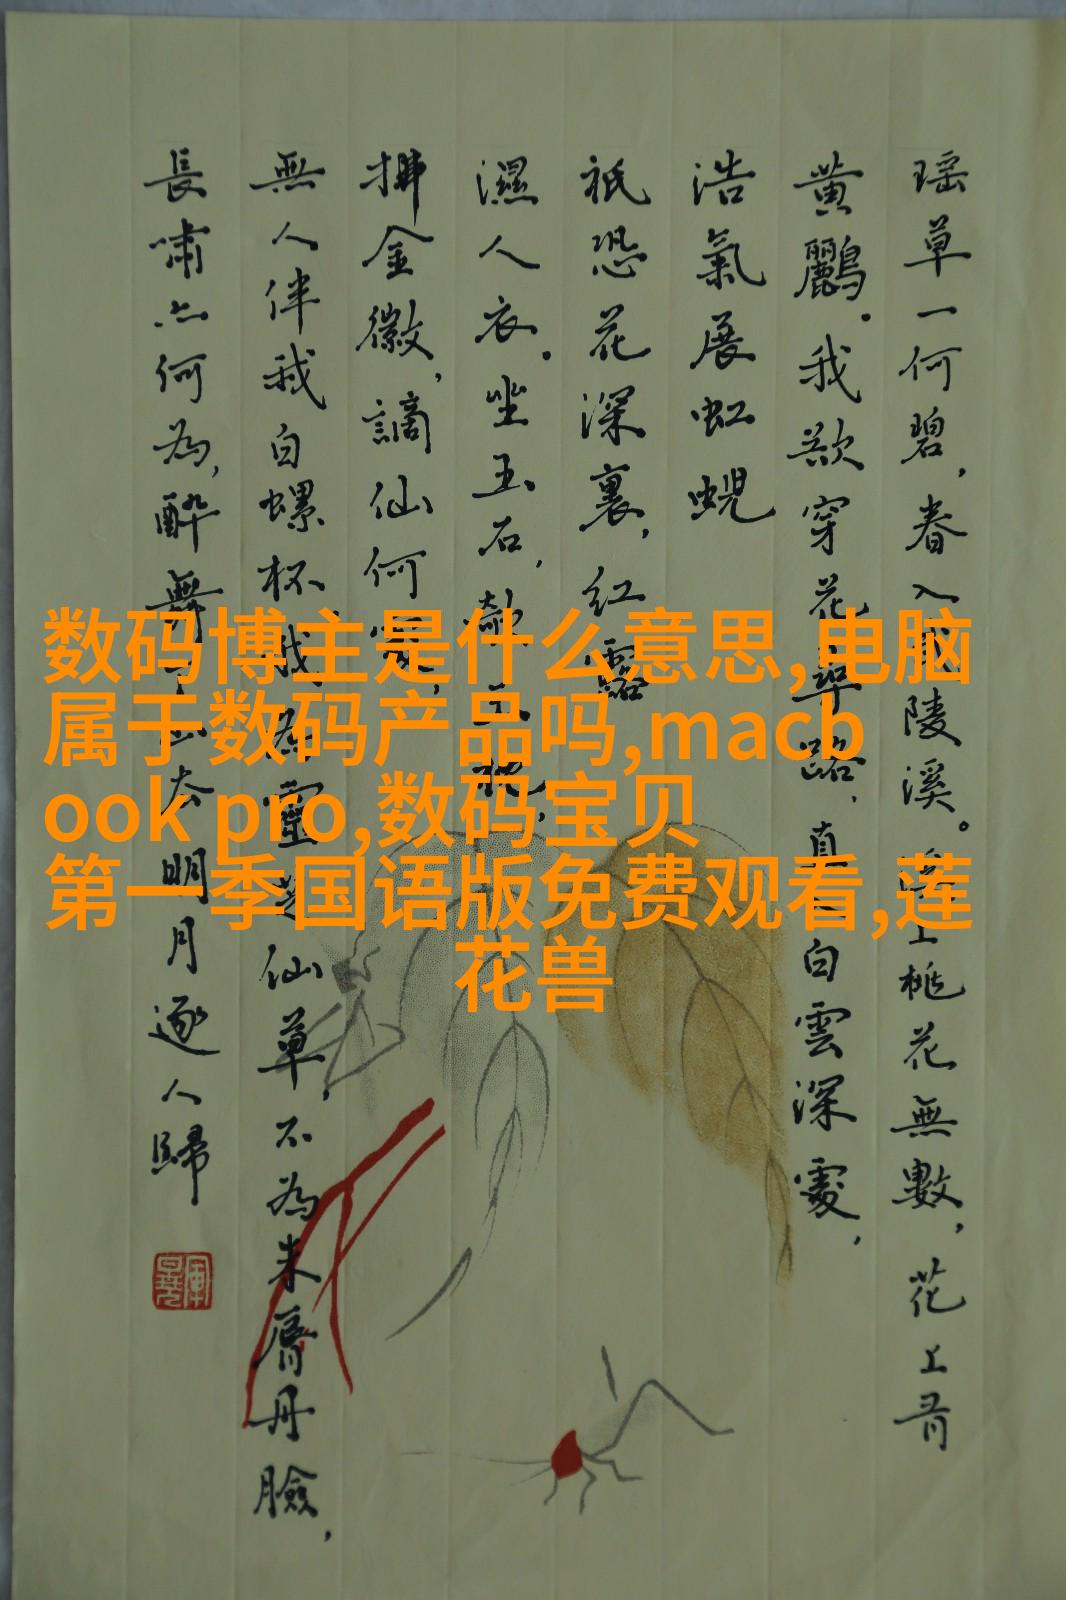 瑶草一何碧，春入武陵溪。溪上桃花無數，花上有
黄鸝。我欲穿花尋路，真入白雲深處，
浩氣展虹蜺
祇恐花深裏，紅露
濕人衣。坐玉石，欹玉枕，
拂金徽，謫仙何處，
無人伴我白螺杯，我為靈芝仙草，不為朱唇丹臉，
長嘯亦何為，醉舞下山去明月逐人歸
数码博主是什么意思,电脑
属于数码产品吗,macb
ook pro,数码宝贝
第一季国语版免费观看,莲
花兽